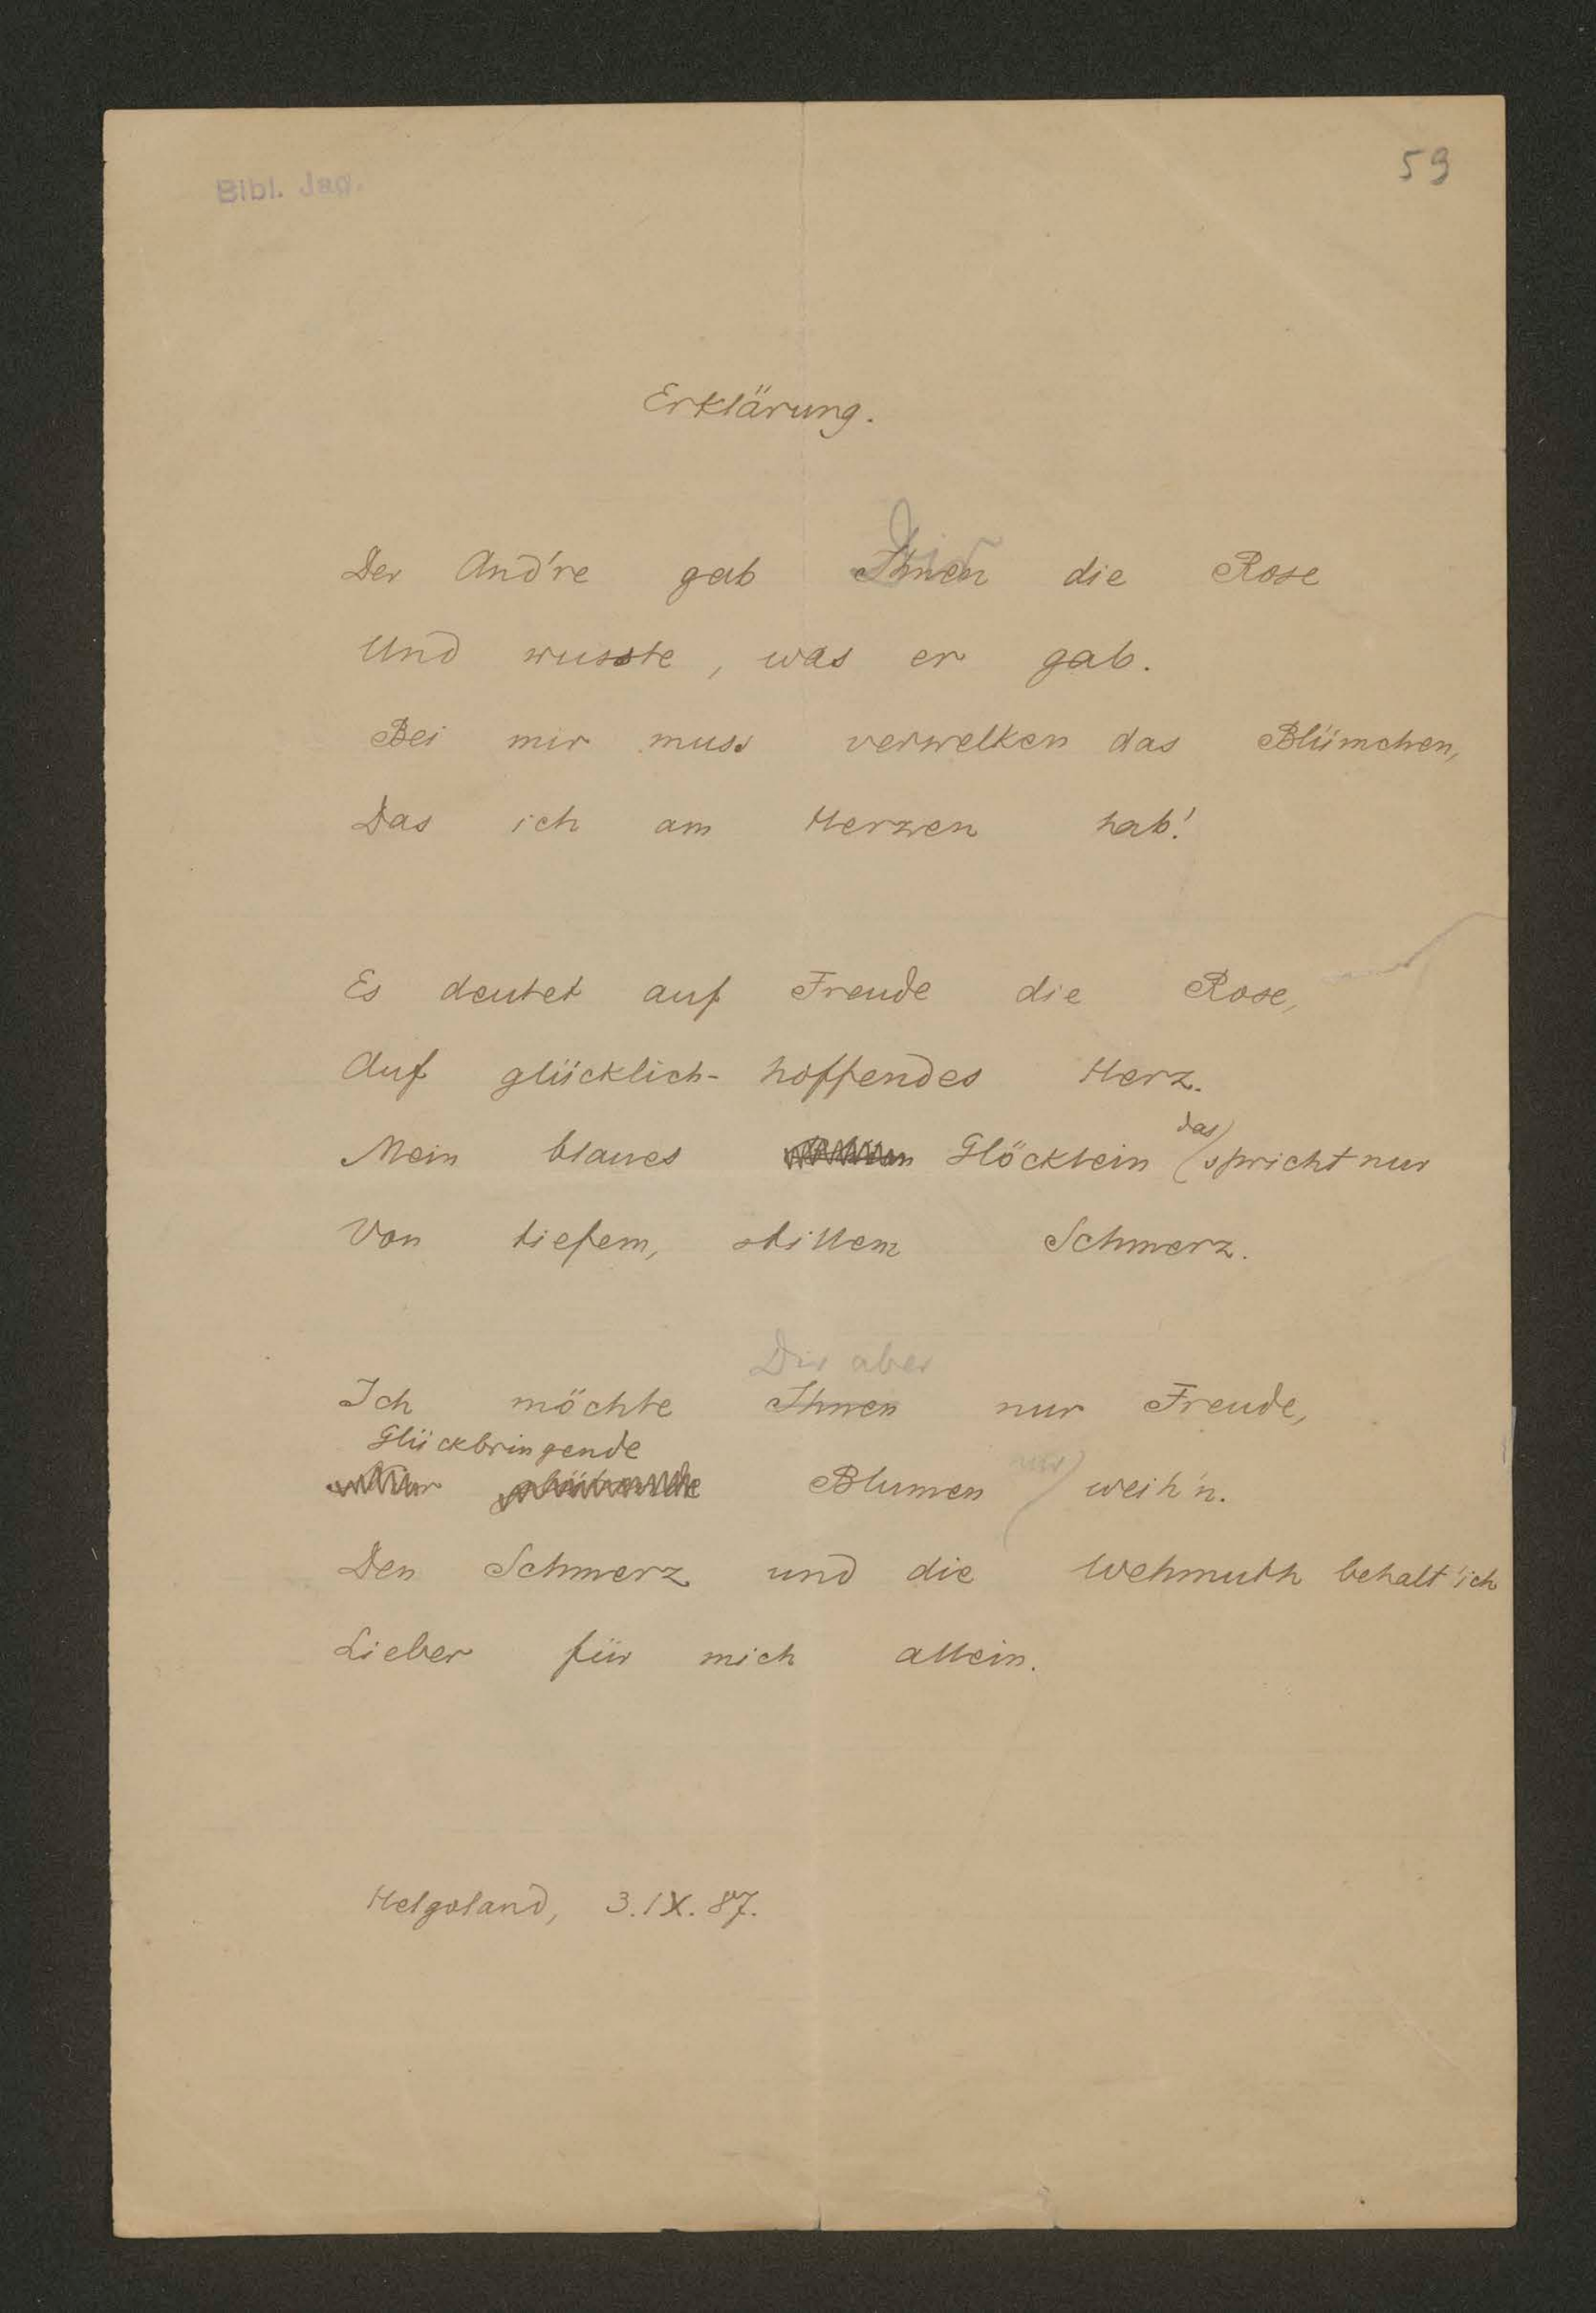 Bibl. Jag.
59
Erklärung.
Dir
Der And're gab Ihnen die Rose
Und wusste, was er gab.
Bei mir muss verwelken das Blümchen,
Das ich am Herzen hab!
Es deutet auf Freude die Rose,
Auf glücklich-hoffendes Herz.
das
Mein blaues Glöcklein spricht nur
Von tiefem, stillem Schmerz.
Dir aber
Ich möchte Ihnen nur Freude,
Glückbringende nur
Blumen weih'n.
Den Schmerz und die Wehmuth behalt' ich
Lieber für mich allein.
Helgoland, 3.IX.87.